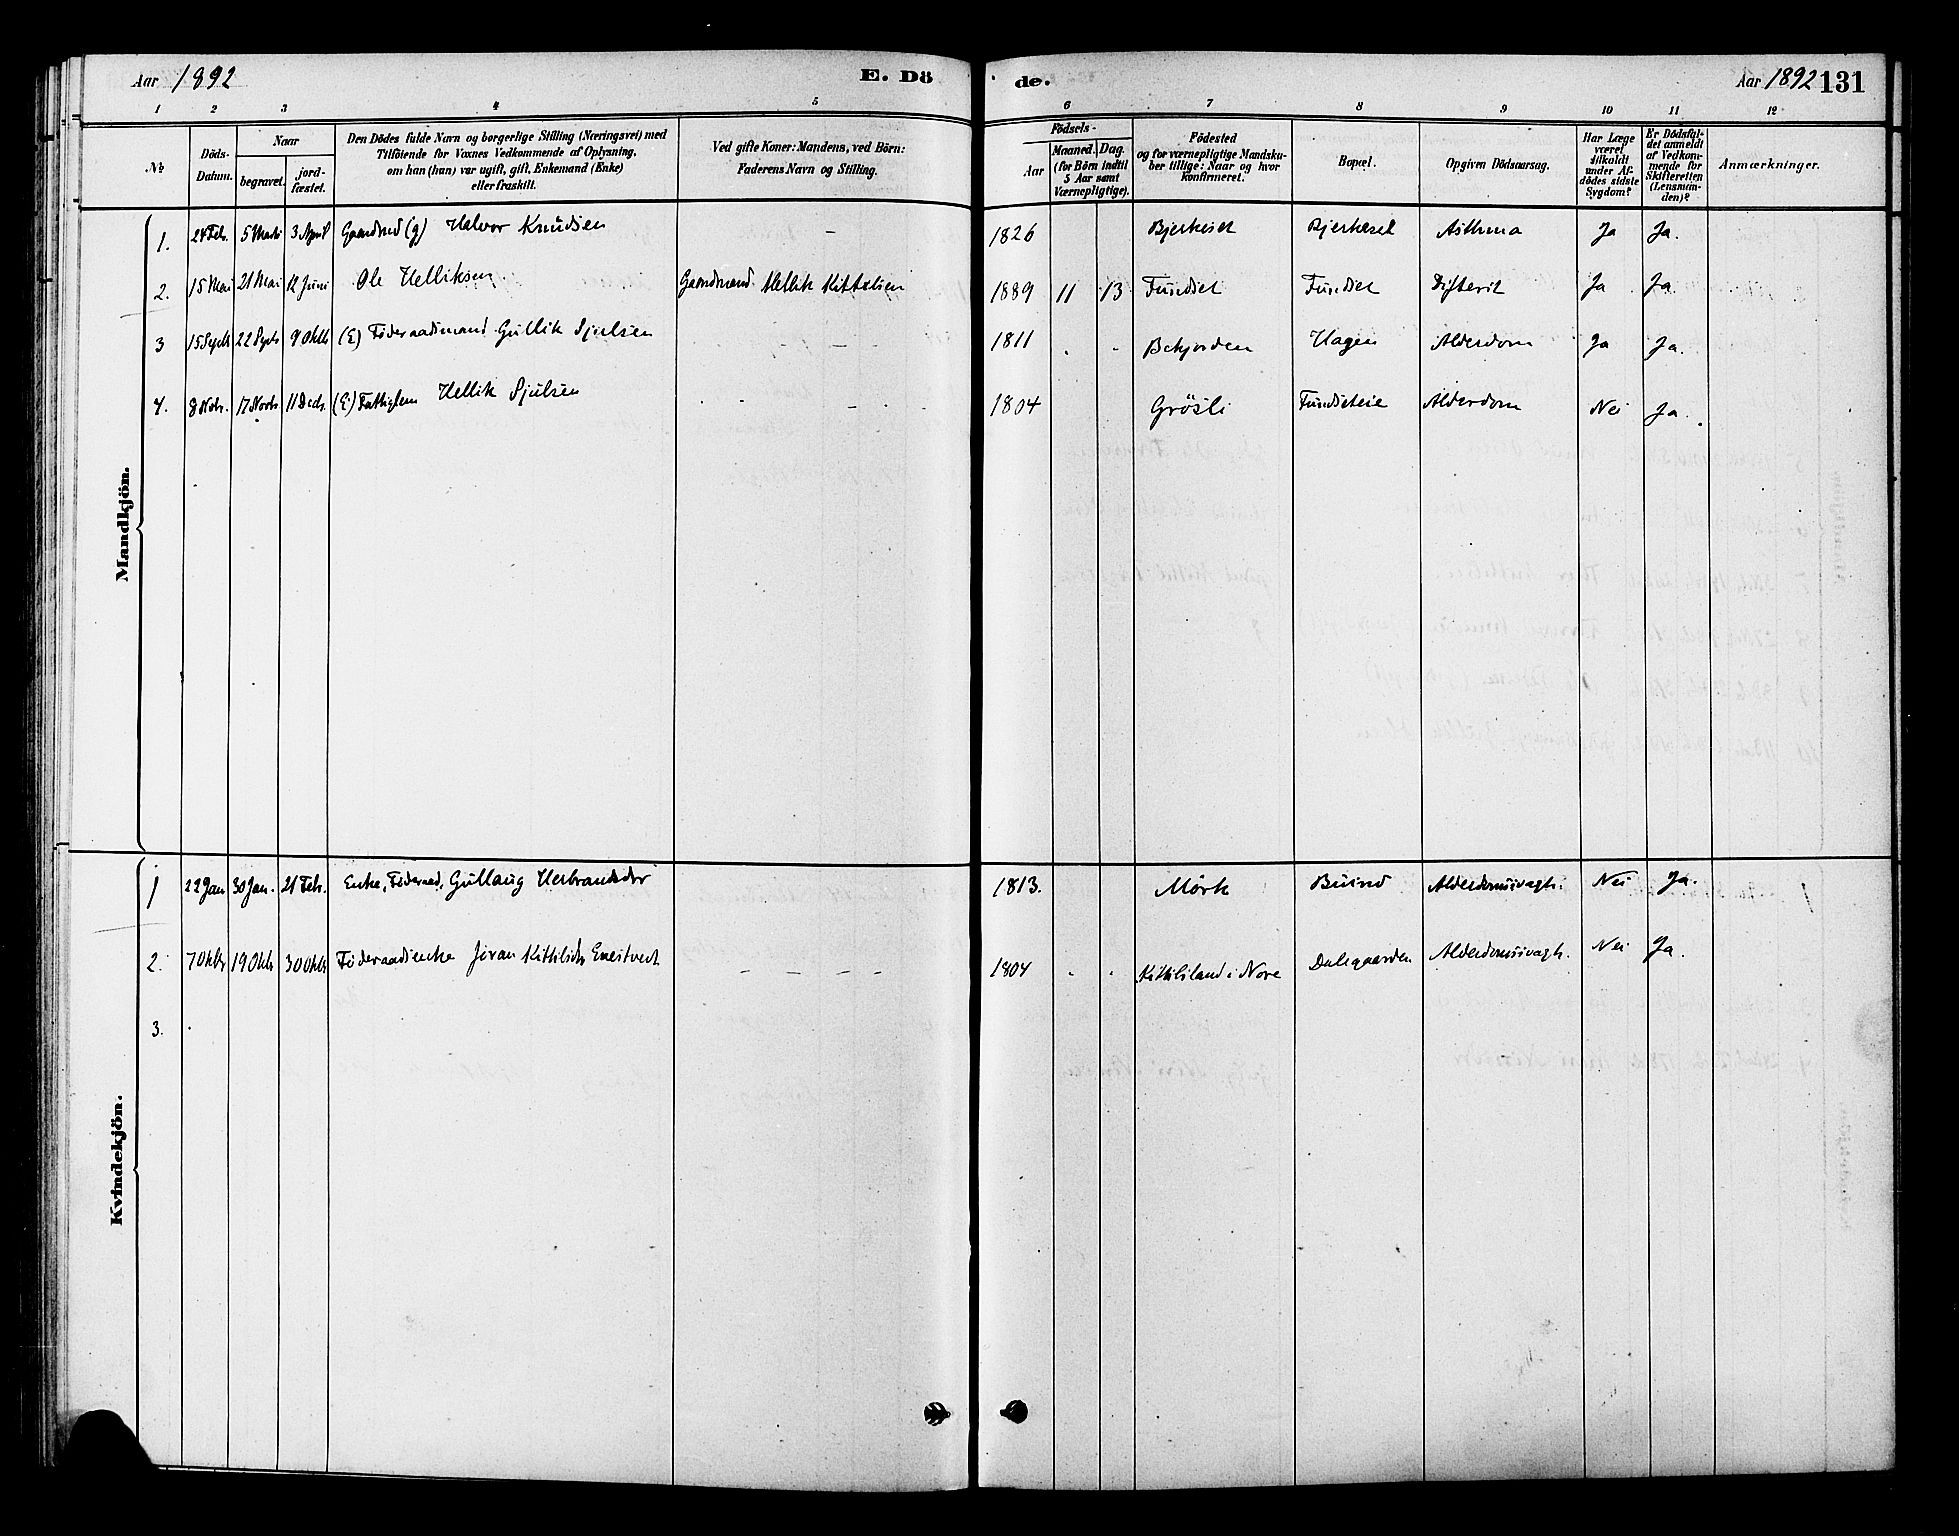 Aar 1892
E. Dö
de.
Aar 1892 131
1 2 3 4 5 6 7 8 9 10 11 12
No
Döds-
Datum.
Naar
begravet.
jord-
fæstet.
Den Dödes fulde Navn og borgerlige Stilling (Næringsvei) med
Tilföiende for Voxnes Vedkommende af Oplysning,
om han (hun) var ugift, gift, Enkemand (Enke)
eller fraskilt.
Ved gifte Koner: Mandens, ved Börn:
Faderens Navn og Stilling.
Födsels-
Aar
Maaned. Dag.
(for Börn indtil
5 Aar samt
Værnepligtige).
Födested
og for værnepligtige Mandsku-
ber tillige: Naar og hvor
konfirmeret.
Bopæl.
Opgiven Dödsaarsag.
Har Læge
været
tilkaldt
under Af-
dödes sidste
Sygdom?
Er Dödsfal-
det anmeldt
af Vedkom-
mende for
Skifteretten
(Lensman-
den)?
Anmærkninger.
Mandkjön.
1. 24 Febr. 5 Marts 3 April Gaardmd (g) Halvor Knudsen - 1826 Bjerkeset Bjerkeset Asthma Ja Ja.
2. 15 Mai 21 Mai 12 Juni Ole Helliksen Gaardmand Hellik Kittelsen 1889 11 13 Fundset Fundset Difterit Ja Ja
3 15 Septb 22 Septb 9 Oktb (E) Föderaadsmand Gullik Sjulsen 1811 Bekjorden Hagen Alderdom Ja Ja.
4. 8 Nobr. 17 Novbr 11 Decb. (E) Fattiglem Hellik Sjulsen 1804 Grösli Fundseteie Alderdom Nei Ja.
Kvindekjön.
1 22 Jan 30 Jan. 21 Febr. Enke, Föderaad, Gullaug Herbrandsdr 1813. Mörk Buind Alderdomssvagh. Nei Ja.
2. 7 Oktbr 19 Oktb 30 Oktb Föderaadsenke Jöran Kittilsdtr - - - - 1804 Kittilsland i Nore Dalsgaarden Alderdomssvagh. Nei Ja.
3.